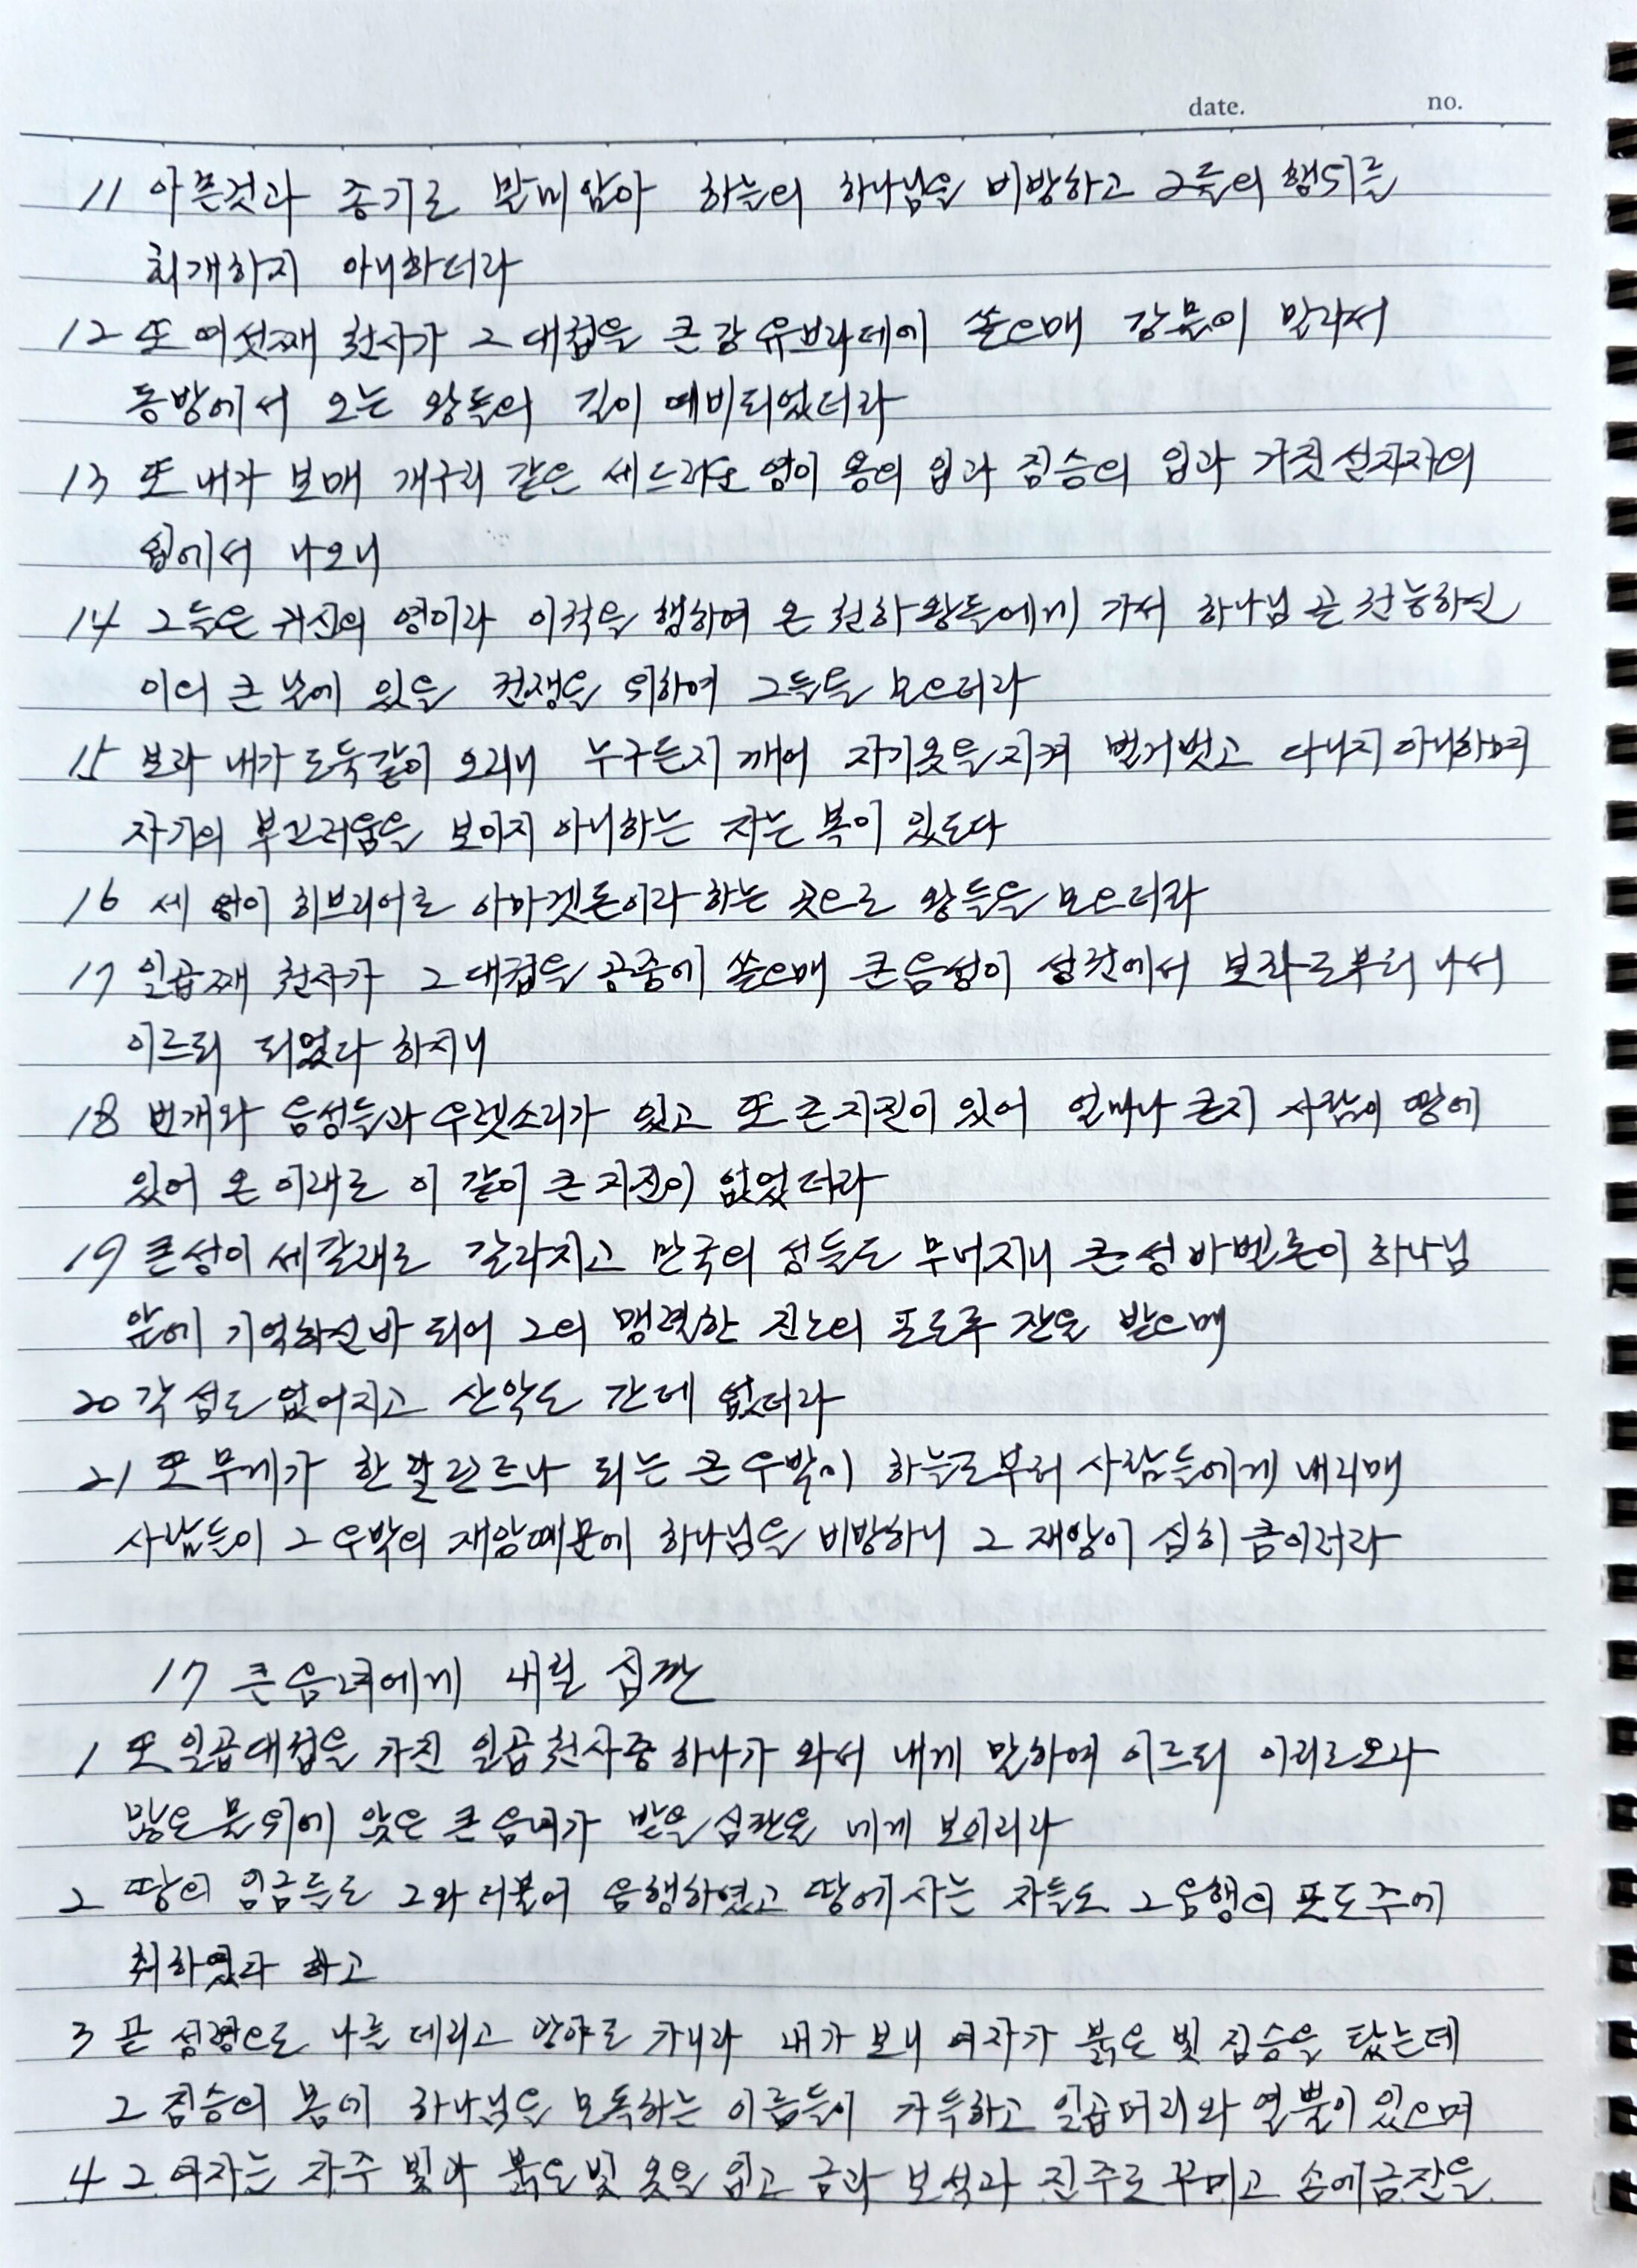 date. no.
11 아픈것과 종기로 말미암아 하늘의 하나님을 비방하고 그들의 행위를
회개하지 아니하더라
12 또 여섯째 천사가 그 대접을 큰 강 유브라데에 쏟으매 강물이 말라서
동방에서 오는 왕들의 길이 예비되었더라
13 또 내가 보매 개구리 같은 세 더러운 영이 용의 입과 짐승의 입과 거짓 선지자의
입에서 나오니
14 그들은 귀신의 영이라 이적을 행하여 온 천하 왕들에게 가서 하나님 곧 전능하신
이의 큰 날에 있을 전쟁을 위하여 그들을 모으더라
15 보라 내가 도둑같이 오리니 누구든지 깨어 자기옷을 지켜 벌거벗고 다니지 아니하며
자기의 부끄러움을 보이지 아니하는 자는 복이 있도다
16 세 영이 히브리어로 아마겟돈이라 하는 곳으로 왕들을 모으더라
17 일곱째 천사가 그 대접을 공중에 쏟으매 큰 음성이 성전에서 보좌로부터 나서
이르되 되었다 하시니
18 번개와 음성들과 우렛소리가 있고 또 큰 지진이 있어 얼마나 큰지 사람이 땅에
있어 온 이래로 이 같이 큰 지진이 없었더라
19 큰 성이 세 갈래로 갈라지고 만국의 성들도 무너지니 큰 성 바벨론이 하나님
앞에 기억하신바 되어 그의 맹렬한 진노의 포도주 잔을 받으매
20 각 섬도 없어지고 산악도 간데 없더라
21 또 무게가 한 달란트나 되는 큰 우박이 하늘로부터 사람들에게 내리매
사람들이 그 우박의 재앙때문에 하나님을 비방하니 그 재앙이 심히 큼이러라
17 큰 음녀에게 내릴 심판
1 또 일곱대접을 가진 일곱 천사중 하나가 와서 내게 말하여 이르되 이리로오라
많은 물 위에 앉은 큰 음녀가 받을 심판을 네게 보이리라
2 땅의 임금들도 그와 더불어 음행하였고 땅에 사는 자들도 그 음행의 포도주에
취하였다 하고
3 곧 성령으로 나를 데리고 광야로 가니라 내가 보니 여자가 붉은 빛 짐승을 탔는데
그 짐승의 몸에 하나님을 모독하는 이름들이 가득하고 일곱머리와 열 뿔이 있으며
4 그 여자는 자주 빛과 붉은 빛 옷을 입고 금과 보석과 진주로 꾸미고 손에 금잔을